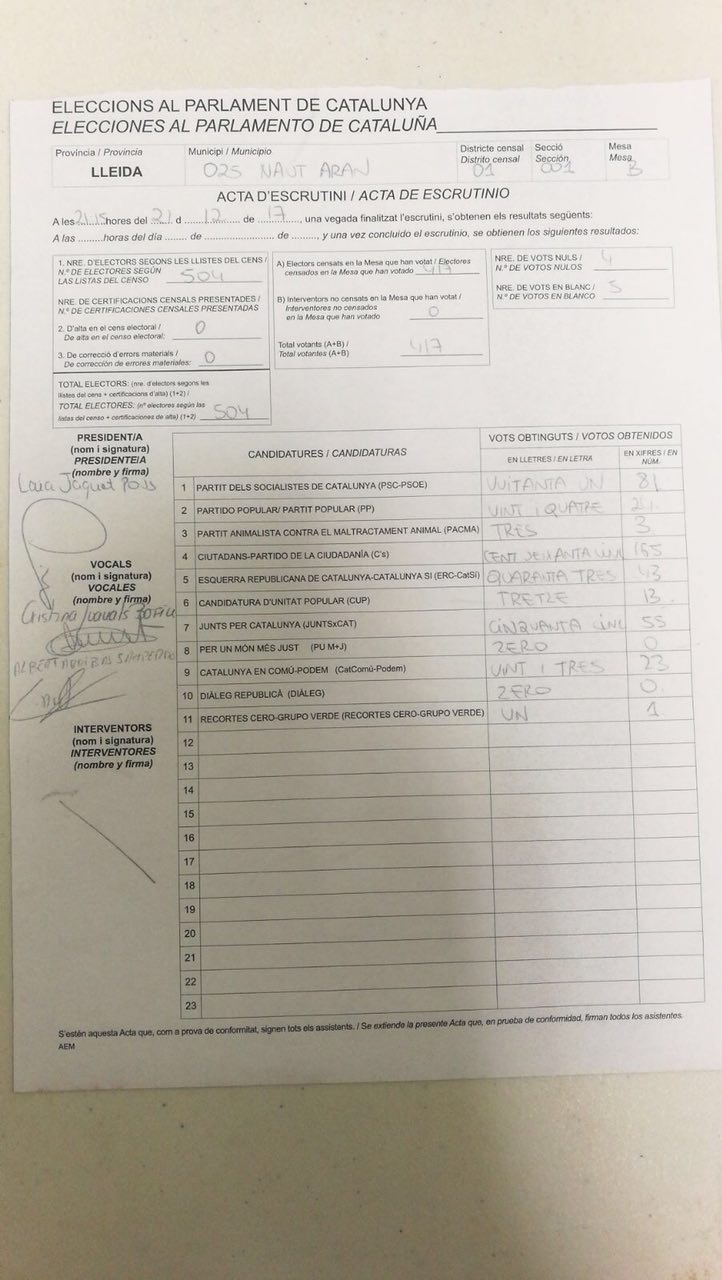 ELECCIONS AL PARLAMENT DE CATALUNYA
ELECCIONES AL PARLAMENTO DE CATALUÑA
Província / Provincia
LLEIDA
Municipi / Municipio
025 NAUT ARAN
Districte censal
Distrito censal
01
Secció
Sección
001
Mesa
Mesa
B
ACTA D'ESCRUTINI / ACTA DE ESCRUTINIO
A les 21,15 hores del 21 d 12 de 17, una vegada finalitzat l'escrutini, s'obtenen els resultats següents:
A las .........horas del día ....... de ........................ de ........, y una vez concluido el escrutinio, se obtienen los siguientes resultados:
1. NRE. D'ELECTORS SEGONS LES LLISTES DEL CENS /
N.º DE ELECTORES SEGÚN
LAS LISTAS DEL CENSO 504
NRE. DE CERTIFICACIONS CENSALS PRESENTADES /
N.º DE CERTIFICACIONES CENSALES PRESENTADAS
2. D'alta en el cens electoral /
De alta en el censo electoral: 0
3. De correcció d'errors materials /
De corrección de errores materiales: 0
TOTAL ELECTORS: (nre. d'electors segons les
llistes del cens + certificacions d'alta) (1+2) /
TOTAL ELECTORES: (nº electores según las
listas del censo + certificaciones de alta) (1+2) 504
A) Electors censats en la Mesa que han votat / Electores
censados en la Mesa que han votado 417
B) Interventors no censats en la Mesa que han votat /
Interventores no censados
en la Mesa que han votado 0
Total votants (A+B) /
Total votantes (A+B) 417
NRE. DE VOTS NULS /
N.º DE VOTOS NULOS 4
NRE. DE VOTS EN BLANC /
N.º DE VOTOS EN BLANCO 5
PRESIDENT/A
(nom i signatura)
PRESIDENTE/A
(nombre y firma)
Laia Jaquet
VOCALS
(nom i signatura)
VOCALES
(nombre y firma)
Cristina
ALBERT
INTERVENTORS
(nom i signatura)
INTERVENTORES
(nombre y firma)
CANDIDATURES / CANDIDATURAS
VOTS OBTINGUTS / VOTOS OBTENIDOS
EN LLETRES / EN LETRA
EN XIFRES / EN NÚM.
1 PARTIT DELS SOCIALISTES DE CATALUNYA (PSC-PSOE) VUITANTA UN 81
2 PARTIDO POPULAR/ PARTIT POPULAR (PP) VINT I QUATRE 24
3 PARTIT ANIMALISTA CONTRA EL MALTRACTAMENT ANIMAL (PACMA) TRES 3
4 CIUTADANS-PARTIDO DE LA CIUDADANÍA (C's) CENT SEIXANTA CINC 165
5 ESQUERRA REPUBLICANA DE CATALUNYA-CATALUNYA SI (ERC-CatSí) QUARANTA TRES 43
6 CANDIDATURA D'UNITAT POPULAR (CUP) TRETZE 13
7 JUNTS PER CATALUNYA (JUNTSxCAT) CINQUANTA CINC 55
8 PER UN MÓN MÉS JUST (PU M+J) ZERO 0
9 CATALUNYA EN COMÚ-PODEM (CatComú-Podem) VINT I TRES 23
10 DIÀLEG REPUBLICÀ (DIÀLEG) ZERO 0
11 RECORTES CERO-GRUPO VERDE (RECORTES CERO-GRUPO VERDE) UN 1
12
13
14
15
16
17
18
19
20
21
22
23
S'estén aquesta Acta que, com a prova de conformitat, signen tots els assistents. / Se extiende la presente Acta que, en prueba de conformidad, firman todos los asistentes.
AEM